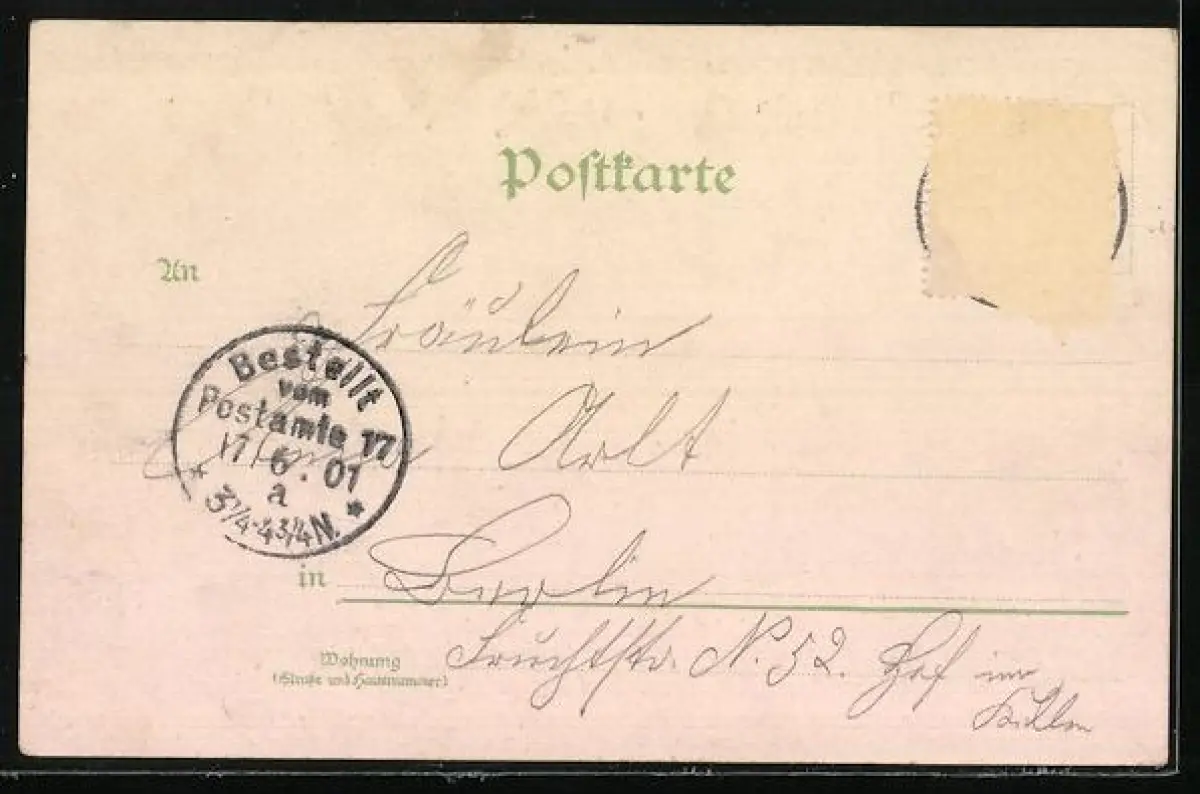 Postkarte
An
Fräulein
Bestellt
vom
Postamte 17
17/6.01
a
* 3¼-4¾N. *
Arlt
in Berlin
Wohnung
(Straße und Hausnummer)
Fruchtstr. N. 52. Hof im